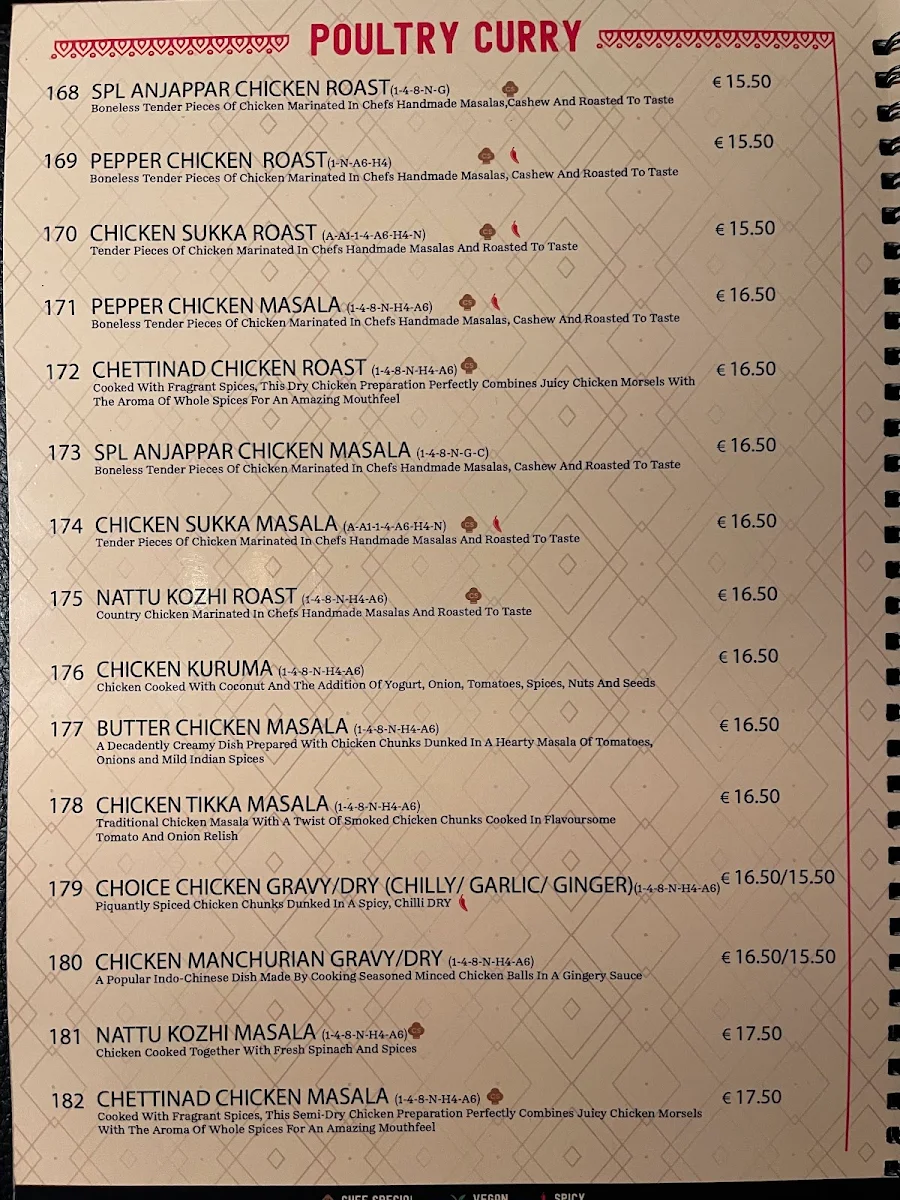 POULTRY CURRY
168 SPL ANJAPPAR CHICKEN ROAST(1-4-8-N-G) € 15.50
Boneless Tender Pieces Of Chicken Marinated In Chefs Handmade Masalas,Cashew And Roasted To Taste
169 PEPPER CHICKEN ROAST(1-N-A6-H4) € 15.50
Boneless Tender Pieces Of Chicken Marinated In Chefs Handmade Masalas, Cashew And Roasted To Taste
170 CHICKEN SUKKA ROAST (A-A1-1-4-A6-H4-N) € 15.50
Tender Pieces Of Chicken Marinated In Chefs Handmade Masalas And Roasted To Taste
171 PEPPER CHICKEN MASALA (1-4-8-N-H4-A6) € 16.50
Boneless Tender Pieces Of Chicken Marinated In Chefs Handmade Masalas, Cashew And Roasted To Taste
172 CHETTINAD CHICKEN ROAST (1-4-8-N-H4-A6) € 16.50
Cooked With Fragrant Spices, This Dry Chicken Preparation Perfectly Combines Juicy Chicken Morsels With
The Aroma Of Whole Spices For An Amazing Mouthfeel
173 SPL ANJAPPAR CHICKEN MASALA (1-4-8-N-G-C) € 16.50
Boneless Tender Pieces Of Chicken Marinated In Chefs Handmade Masalas, Cashew And Roasted To Taste
174 CHICKEN SUKKA MASALA (A-A1-1-4-A6-H4-N) € 16.50
Tender Pieces Of Chicken Marinated In Chefs Handmade Masalas And Roasted To Taste
175 NATTU KOZHI ROAST (1-4-8-N-H4-A6) € 16.50
Country Chicken Marinated In Chefs Handmade Masalas And Roasted To Taste
176 CHICKEN KURUMA (1-4-8-N-H4-A6) € 16.50
Chicken Cooked With Coconut And The Addition Of Yogurt, Onion, Tomatoes, Spices, Nuts And Seeds
177 BUTTER CHICKEN MASALA (1-4-8-N-H4-A6) € 16.50
A Decadently Creamy Dish Prepared With Chicken Chunks Dunked In A Hearty Masala Of Tomatoes,
Onions and Mild Indian Spices
178 CHICKEN TIKKA MASALA (1-4-8-N-H4-A6) € 16.50
Traditional Chicken Masala With A Twist Of Smoked Chicken Chunks Cooked In Flavoursome
Tomato And Onion Relish
179 CHOICE CHICKEN GRAVY/DRY (CHILLY/ GARLIC/ GINGER)(1-4-8-N-H4-A6) € 16.50/15.50
Piquantly Spiced Chicken Chunks Dunked In A Spicy, Chilli DRY
180 CHICKEN MANCHURIAN GRAVY/DRY (1-4-8-N-H4-A6) € 16.50/15.50
A Popular Indo-Chinese Dish Made By Cooking Seasoned Minced Chicken Balls In A Gingery Sauce
181 NATTU KOZHI MASALA (1-4-8-N-H4-A6) € 17.50
Chicken Cooked Together With Fresh Spinach And Spices
182 CHETTINAD CHICKEN MASALA (1-4-8-N-H4-A6) € 17.50
Cooked With Fragrant Spices, This Semi-Dry Chicken Preparation Perfectly Combines Juicy Chicken Morsels
With The Aroma Of Whole Spices For An Amazing Mouthfeel
CHEF SPECIAL VEGAN SPICY